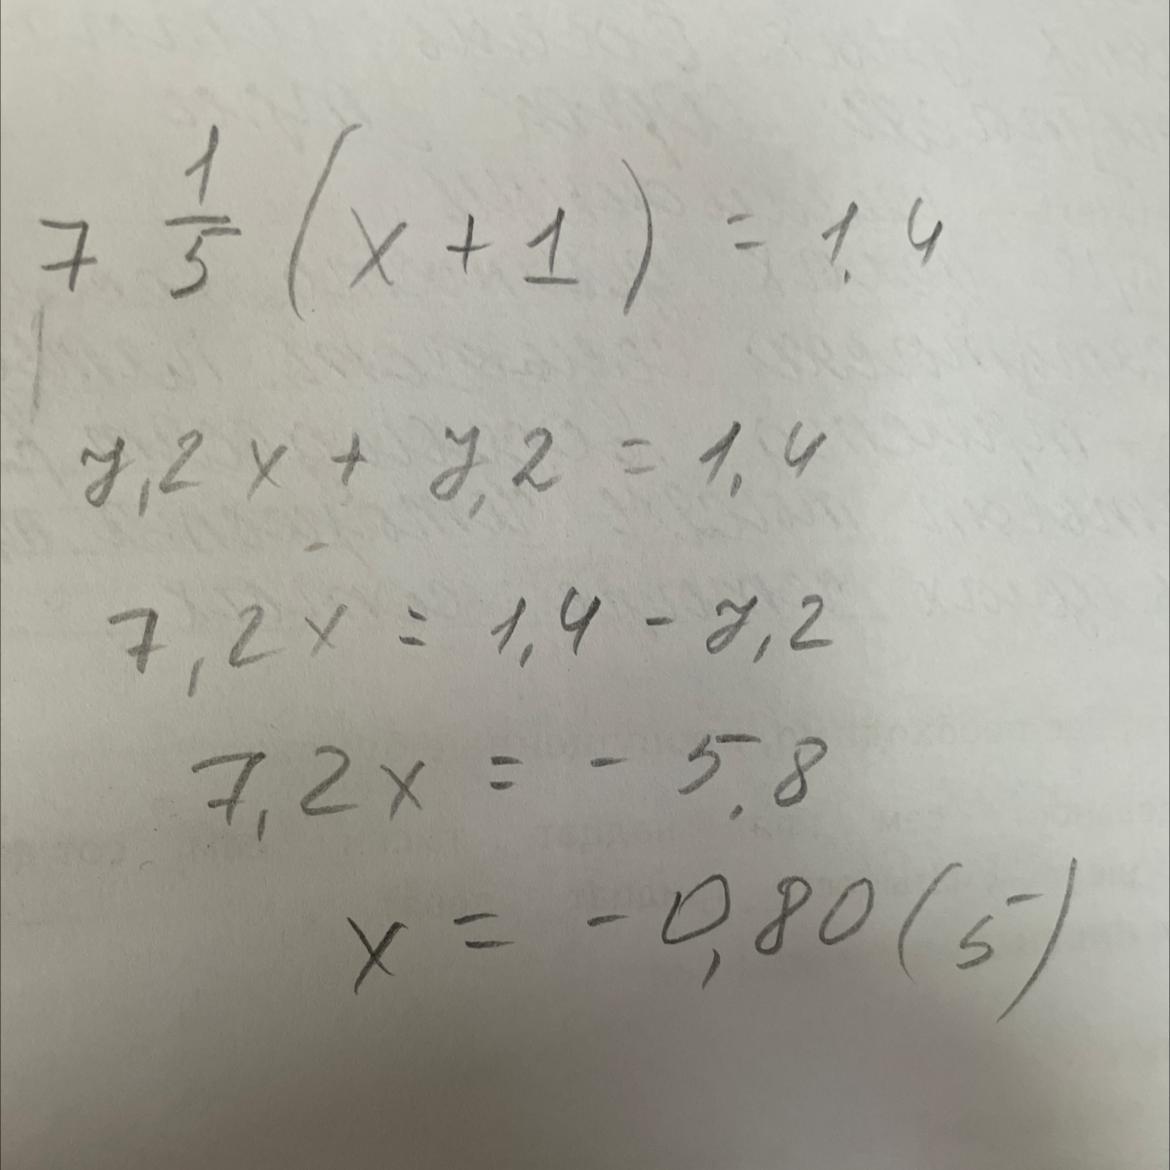 7 1/5 (x + 1) = 1.4
7,2x + 7,2 = 1,4
7,2x = 1,4 - 7,2
7,2x = - 5.8
x = - 0,80(5)